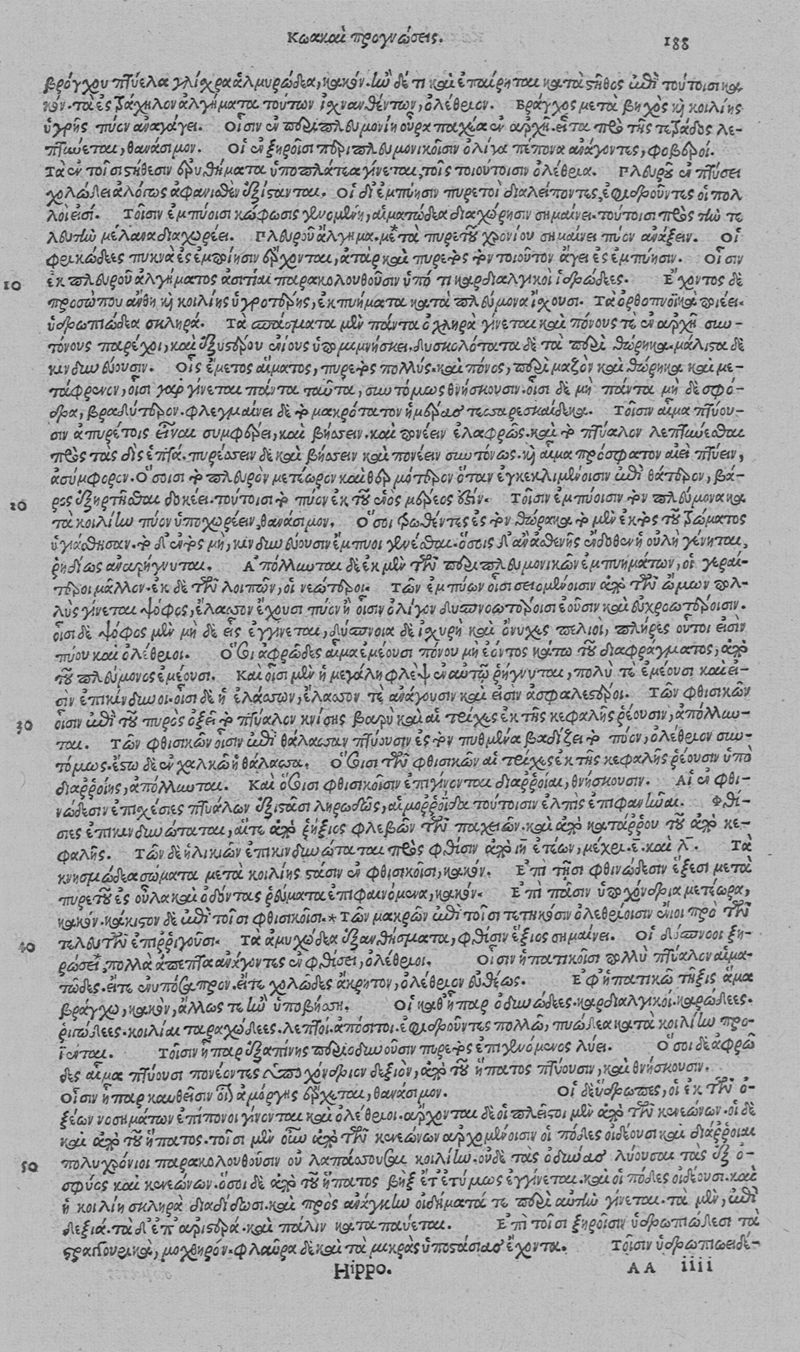 Κωακαὶ προγνώσεις. 188
βράγχου πτύελα γλίσχρα ἁλμυρώδεα, κακόν. ἢν δέ τι καὶ ἐπαίρηται κατὰ στῆθος ἐπὶ τούτοισι κα
κόν. τὰ ἐς τράχηλον ἀλγήματα τούτων ἰσχνανθέντων, ὀλέθριον. Βράγχος μετὰ βηχὸς καὶ κοιλίης
ὑγρῆς πύον ἀναγάγει. Οἷσιν ἐν περιπλευμονίῃ οὖρα παχέα ἐν ἀρχῇ. εἶτα πρὸ τῆς τετράδος λε-
πτύνεται, θανάσιμον. Οἱ ἐν ξηροῖσι περιπλευμονικοῖσιν ὀλίγα πέπονα ἀνάγοντες, φοβεροί.
Τὰ ἐν τοῖσι στήθεσιν ἐρυθήματα ὑποπλάτεα γίνεται, τοῖς τοιούτοισιν ὀλέθρια. Πλευροῦ ἐν πτύσει
χολώδει ἀλόγως ἀφανισθὲν ἐξίστανται. Οἱ δι' ἐμπύησιν πυρετοὶ διαλείποντες, ἐφιδροῦντες οἱ πολ
λοί εἰσι. Τοῖσιν ἐμπύοισι κώφωσις γενομένη, αἱματώδεα διαχώρησιν σημαίνει. τούτοισι πρὸς τὴν τε
λευτὴν μέλανα διαχωρέει. Πλευροῦ ἄλγημα μετὰ πυρετοῦ χρονίου σημαίνει πύον ἀνάξειν. Οἱ
φρικώδεες πυκνὰ ἐς ἐμπύησιν ἔρχονται, ἀτὰρ καὶ πυρετὸς τὸν τοιοῦτον ἄγει ἐς ἐμπύησιν. Οἷσιν
10 ἐκ πλευροῦ ἀλγήματος ἀσιτίαι παρακολουθοῦσιν ὑπό τι καρδιαλγικοὶ ἱδρώδεες. Ἔχοντος δὲ
προσώπου ἄνθη καὶ κοιλίης ὑγρότητος, ἐκπυήματα κατὰ πλεύμονα ἴσχουσι. Τὰ ὀρθοπνοϊκὰ ποιέει
ὑδρωπιώδεα σκληρά. Τὰ σπάσματα μὲν πάντα ὀχληρὰ γίνεται καὶ πόνους τε ἐν ἀρχῇ συν-
τόνους παρέχει, καὶ ἐξ ὑστέρου ἐνίους ὑπομιμνήσκει. δυσκολότατα δὲ τὰ περὶ θώρηκα. μάλιστα δὲ
κινδυνεύουσιν. Οἷς ἔμετος αἵματος, πυρετὸς πολλὺς, καὶ πόνος, περὶ μαζὸν καὶ θώρηκα καὶ με-
τάφρενον, οἷσι γὰρ γίνεται πάντα ταῦτα, συντόμως θνήσκουσιν. οἷσι δὲ μὴ πάντα μὴ δὲ σφό-
δρα, βραδύτερον. φλεγμαίνει δὲ τὸ μακρότατον ἡμέρας τεσσαρεσκαίδεκα. Τοῖσιν αἷμα πτύου-
σιν ἀπυρέτοις εἶναι συμφέρει, καὶ βήσσειν. καὶ πονέειν ἐλαφρῶς. καὶ τὸ πτύαλον λεπτύνεσθαι
πρὸς τὰς δὶς ἑπτά. πυρέσσειν δὲ καὶ βήσσειν καὶ πονέειν συντόνως, καὶ αἷμα πρόσφατον αἰεὶ πτύειν,
ἀσύμφορον. Ὁσοισι τὸ πλευρὸν μετέωρον καὶ θερμότερον ὅταν ἐγκεκλιμένοισιν ἐπὶ θάτερον, βά-
20 ρος ἐξηρτῆσθαι δοκέει. τούτοισι τὸ πύον ἐκ τοῦ ἑνὸς μέρεός ἐστιν. Τοῖσιν ἐμπύοισιν τὸν πλεύμονα κα
τὰ κοιλίην πύον ὑποχωρέειν, θανάσιμον. Ὅσοι τρωθέντες ἐς τὸν θώρακα τὸ μὲν ἐκτὸς τοῦ τρώματος
ὑγιάσθησαν. τὸ δ' ἐντὸς μὴ, κινδυνεύουσιν ἔμπυοι γενέσθαι. ὅστις δ' ἂν ἀσθενὴς ἔνδοθεν ἡ οὐλὴ γένηται,
ῥηϊδίως ἀναρρήγνυται. Ἀπόλλυνται δὲ ἐκ μὲν τῶν περιπλευμονικῶν ἐμπυημάτων, οἱ γεραί-
τεροι μᾶλλον. ἐκ δὲ τῶν λοιπῶν, οἱ νεώτεροι. Τῶν ἐμπύων οἷσι σειομένοισιν ἀπὸ τῶν ὤμων πολ-
λὺς γίνεται ψόφος, ἔλασσον ἔχουσι πύον ἢ οἷσιν ὀλίγον δυσπνοωτέροισι ἐοῦσιν καὶ εὐχροωτέροισιν.
οἷσι δὲ ψόφος μὲν μὴ δὲ εἷς ἐγγίνεται, δύσπνοια δὲ ἰσχυρὴ καὶ ὄνυχες πελιοὶ, πλήρεες οὗτοι εἰσὶν
πύου καὶ ὀλέθριοι. Ὅσοι ἀφρῶδες αἷμα ἐμέουσι πόνου μὴ ἐόντος κάτω τοῦ διαφράγματος, ἀπὸ
τοῦ πλεύμονος ἐμέουσι. Καὶ οἷσι μὲν ἡ μεγάλη φλὲψ ἐν αὐτῷ ῥήγνυται, πολύ τε ἐμέουσι καὶ εἰ-
σὶν ἐπικίνδυνοι. οἷσι δὲ ἡ ἐλάσσων, ἔλασσόν τε ἀνάγουσιν καὶ εἰσιν ἀσφαλέστεροι. Τῶν φθισικῶν
30 οἷσιν ἐπὶ τοῦ πυρὸς ὄζει τὸ πτύαλον κνίσης βαρὺ καὶ αἱ τρίχες ἐκ τῆς κεφαλῆς ῥέουσιν, ἀπόλλυν-
ται. Τῶν φθισικῶν οἷσιν ἐπὶ θάλασσαν πτύουσιν ἐς τὸν πυθμένα βαδίζει τὸ πύον, ὀλέθριον συν-
τόμως. ἔστω δὲ ἐν χαλκῷ ἡ θάλασσα. Ὅσοισι τῶν φθισικῶν αἱ τρίχες ἐκ τῆς κεφαλῆς ῥέουσιν ὑπὸ
διαῤῥοίης, ἀπόλλυνται. Καὶ ὅσοισι φθισικοῖσιν ἐπιγίνονται διάῤῥοιαι, θνήσκουσιν. Αἱ ἐν φθι-
νώδεσιν ἐπισχέσιες πτυάλων ἐξιστᾶσι ληρωδῶς, αἱμοῤῥοΐδα τούτοισιν ἐλπὶς ἐπιφανῆναι. Φθί-
σιες ἐπικινδυνώταται, αἵτε ἀπὸ ῥήξιος φλεβῶν τῶν παχειῶν. καὶ ἀπὸ κατάρρου τοῦ ἀπὸ κε-
φαλῆς. Τῶν δὲ ἡλικιῶν ἐπικινδυνώταται πρὸς φθίσιν ἀπὸ ιη ἐτέων, μέχρι ε καὶ λ. Τὰ
κνησμώδεα σώματα μετὰ κοιλίης στάσιν ἐν φθισικοῖσι, κακόν. Ἐπὶ τῇσι φθινώδεσιν ἕξεσι μετὰ
πυρετοῦ ἐς οὖλα καὶ ὀδόντας ῥεύματα ἐπιφαινόμενα, κακόν. Ἐπὶ πᾶσιν ὑποχόνδρια μετέωρα,
κακόν. κάκιστον δὲ ἐπὶ τοῖσι φθισικοῖσι. * Τῶν μακρῶν ἐπὶ τοῖσι τετηκόσιν ὀλεθρίοισιν ἔνιοι πρὸ τῶν
40 τελευτῶν ἐπιῤῥιγοῦσι. Τὰ ἀμυχώδεα ἐξανθήσματα, φθίσιν ἕξιος σημαίνει. Οἱ δύσπνοοι ξη-
ρώσει, πολλὰ ἄπεπτα ἀνάγοντες ἐν φθίσει, ὀλέθριοι. Οἷσιν ἡπατικοῖσι πολλὺ πτύαλον αἱμα-
τῶδες. εἴτε ἐνυπόπυρον. εἴτε χολῶδες ἄκρητον, ὀλέθριον εὐθέως. Ἐφ' ἡπατικῷ τῆξις ἅμα
βράγχῳ, κακὸν, ἄλλως τε ἢν ὑποβήσσῃ. Οἱ καθ' ἧπαρ ὀδυνώδεες. καρδιαλγικοί. καρώδεες.
ῥιγώδεες. κοιλίαι ταραχώδεες. λεπτοί. ἀπόσιτοι. ἐφιδροῦντες πολλῷ, πυώδεα κατὰ κοιλίην προ-
ΐενται. Τοῖσιν ἧπαρ ἐξαπίνης περιωδυνοῦσιν πυρετὸς ἐπιγενόμενος λύει. Ὅσοι δὲ ἀφρῶ
δες αἷμα πτύουσι πονέοντες ὑποχόνδριον δεξιὸν, ἀπὸ τοῦ ἥπατος πτύουσιν, καὶ θνήσκουσιν.
Οἷσιν ἧπαρ καυθεῖσιν οἷον ἀμόργης ἔρχεται, θανάσιμον. Οἱ δὲ ὕδρωπες, οἱ ἐκ τῶν ὀ-
ξέων νοσημάτων ἐπίπονοι γίνονται καὶ ὀλέθριοι. ἄρχονται δὲ οἱ πλεῖστοι μὲν ἀπὸ τῶν κενεώνων. οἱ δὲ
καὶ ἀπὸ τοῦ ἥπατος. τοῖσι μὲν οὖν ἀπὸ τῶν κενεώνων ἀρχομένοισιν οἱ πόδες οἰδέουσι καὶ διάῤῥοιαι
50 πολυχρόνιοι παρακολουθοῦσιν οὐ λαπάσσουσαι κοιλίην. οὐδὲ τὰς ὀδύνας λύουσαι τὰς ἐξ ὀ-
σφύος καὶ κενεώνων. ὅσοι δὲ ἀπὸ τοῦ ἥπατος βὴξ ἐτέτυμως ἐγγίνεται. καὶ οἱ πόδες οἰδέουσι. καὶ
ἡ κοιλίη σκληρὰ διαδίδωσι. καὶ πρὸς ἀνάγκην οἰδήματά τε περὶ αὐτὴν γίνεται. τὰ μὲν, ἐπὶ
δεξιὰ. τὰ δ' ἐπ' ἀριστερὰ. καὶ πάλιν καταπαύεται. Ἐπὶ τοῖσι ξηροῖσιν ὑδρωπιώδεσι τὰ
στραγγουρικὰ, μοχθηρόν. φλαῦρα δὲ καὶ τὰ μικρὰς ὑποστάσιας ἔχοντα. Τοῖσιν ὑδρωπιοειδέ-
Hippo. AA iiii